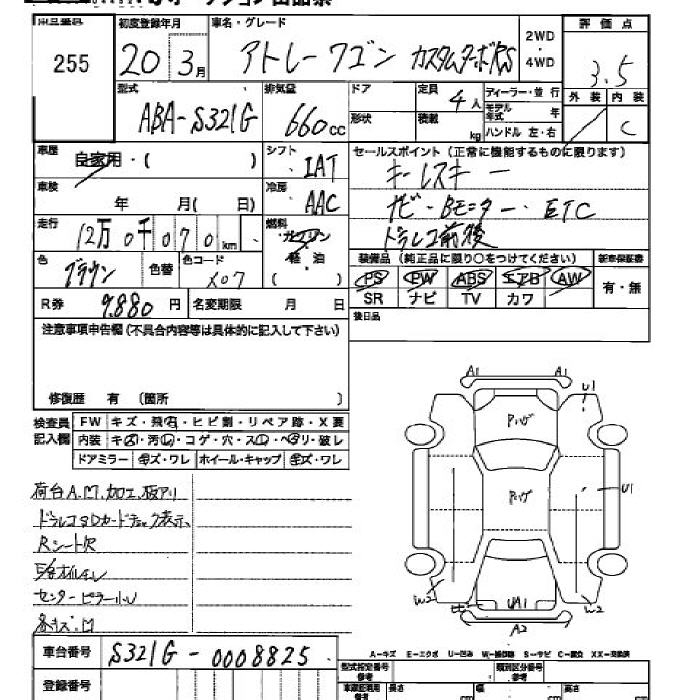 255
初度登録年月
20
3月
車名・グレード
アトレーワゴン カスタムターボRS
2WD
・
4WD
評価点
3.5
外装
内装
C
型式
ABA-S321G
排気量
660cc
ドア
形状
定員
4人
積載
kg
ディーラー・並行
モデル年式
年
ハンドル 左・右
車歴
自家用・( )
シフト
IAT
セールスポイント(正常に機能するものに限ります)
キーレスキー
ナビ・Bモニター・ETC
ドラレコ前後
車検
年 月( 日)
冷房
AAC
走行
12万0千070km
燃料
ガソリン
軽・油
( )
色
ブラウン
色替
色コード
X07
装備品(純正品に限り○をつけてください)
新車保証書
PS PW ABS エアB AW
SR ナビ TV カワ
有・無
R券
9,880円
名変期限
月 日
後日品
注意事項申告欄(不具合内容等は具体的に記入して下さい)
修復歴 有 (箇所 )
検査員
記入欄
FW キズ・飛石・ヒビ割・リペア跡・X要
内装 キズ・汚レ・コゲ・穴・スレ・ヘタリ・破レ
ドアミラー キズ・ワレ ホイール・キャップ キズ・ワレ
荷台A.凹.加工.板アリ
ドラレコSDカードチェック表示
Rシート欠
センターピラー小U
各キズ.凹
A1
A1
U1
U1
W2
W2
A2
A-キズ E-エクボ U-凹み W-補修跡 S-サビ C-腐食 XX-交換済
車台番号
S321G-0008825
登録番号
型式指定番号
参考
類別区分番号
参考
長さ
幅
高さ